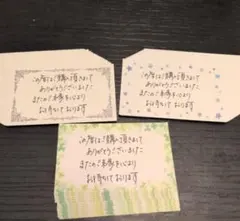 この度はご購入頂きまして
ありがとうございました
またのご来店を心より
お待ちしております
この度はご購入頂きまして
ありがとうございました
またのご来店を心より
お待ちしております
この度はご購入頂きまして
ありがとうございました
またのご来店を心より
お待ちしております